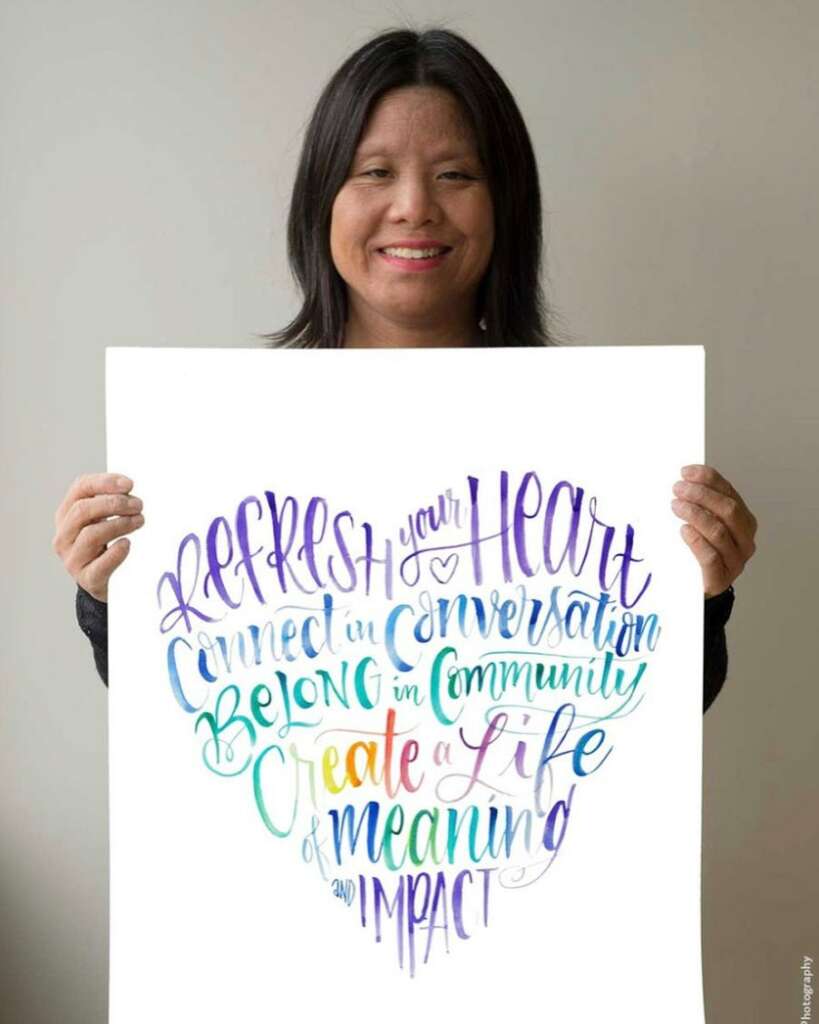 Refresh your Heart
Connect in Conversation
Belong in Community
Create a Life
of meaning
and Impact
Photography